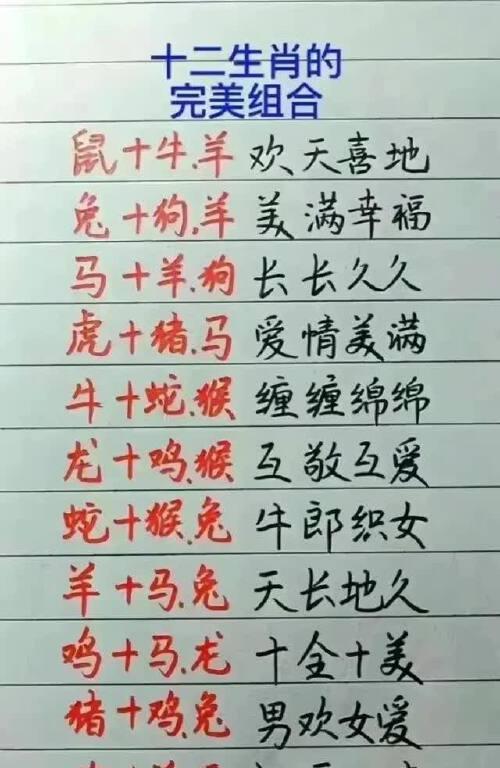 十二生肖的
完美组合
鼠十牛.羊 欢天喜地
兔十狗.羊 美满幸福
马十羊.狗 长长久久
虎十猪.马 爱情美满
牛十蛇.猴 缠缠绵绵
龙十鸡.猴 互敬互爱
蛇十猴.兔 牛郎织女
羊十马.兔 天长地久
鸡十马.龙 十全十美
猪十鸡.兔 男欢女爱